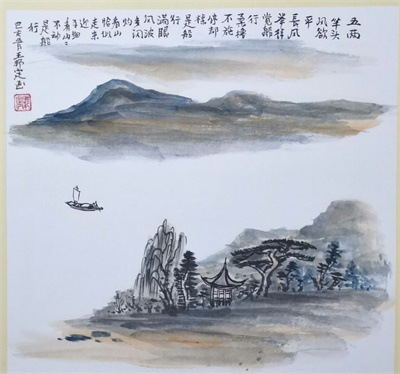 五两
竿头
风欲
平
長风
举棹
觉船
行
柔橹
不施
停却
棹
是船
行
滿眼
风波
多闪
灼
看山
恰似
走来
迎
子细
看山山
不动
是船
行